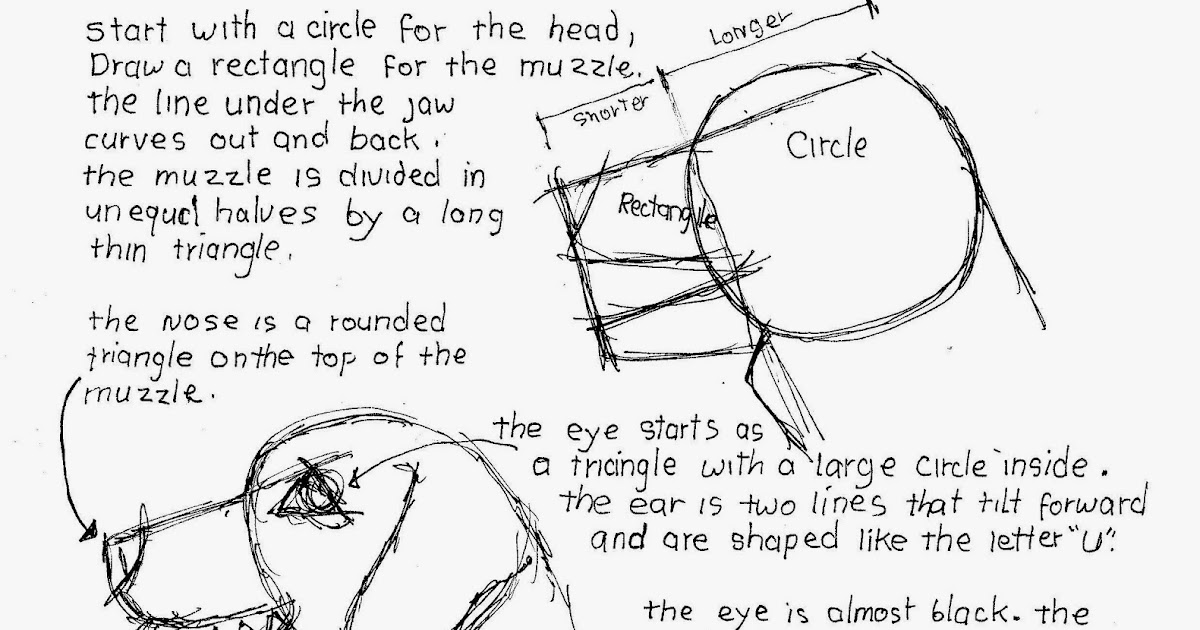 start with a circle for the head,
Draw a rectangle for the muzzle.
the line under the jaw
curves out and back.
the muzzle is divided in
unequal halves by a long
thin triangle.
Longer
shorter
Circle
Rectangle
the nose is a rounded
triangle on the top of the
muzzle.
the eye starts as
a triangle with a large circle inside.
the ear is two lines that tilt forward
and are shaped like the letter "U".
the eye is almost black. the